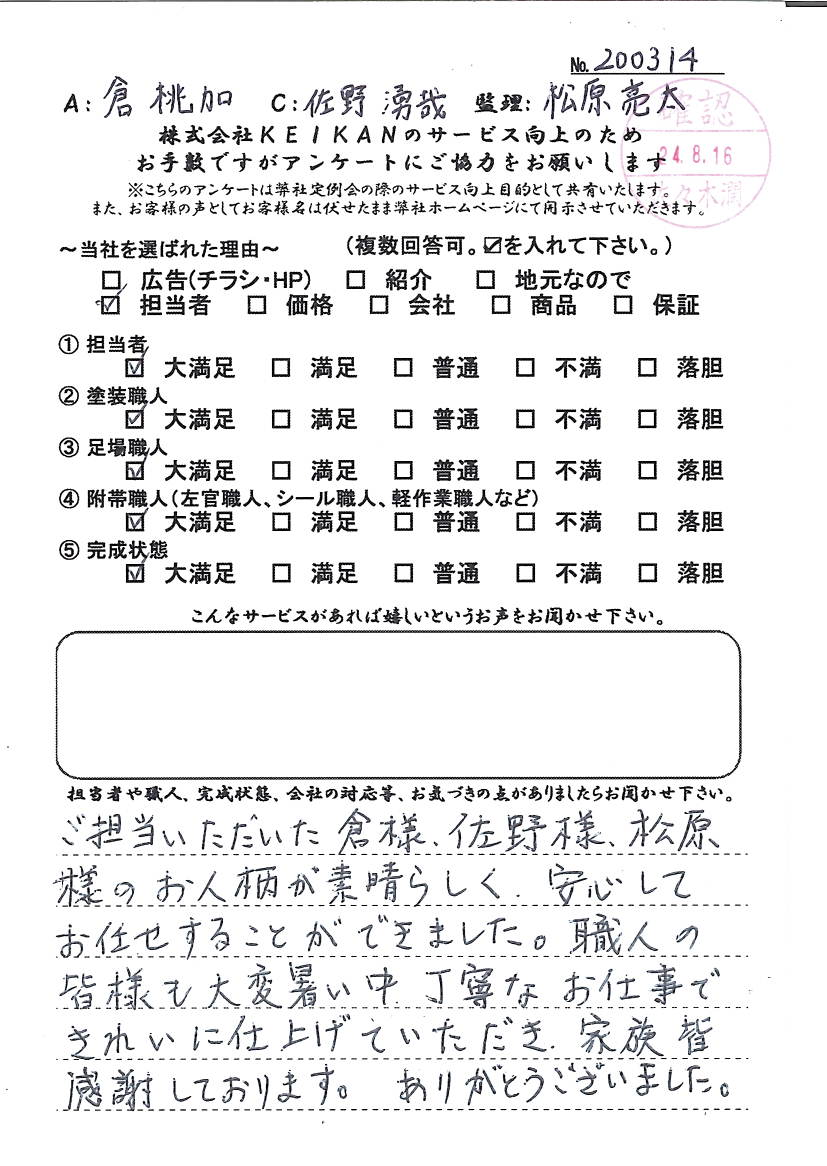 No. 200314
A:倉 桃加 C:佐野 湧哉 監理:松原亮太
確認
24.8.16
佐々木潤
株式会社KEIKANのサービス向上のため
お手数ですがアンケートにご協力をお願いします
※こちらのアンケートは弊社定例会の際のサービス向上目的として共有いたします。
また、お客様の声としてお客様名は伏せたまま弊社ホームページにて開示させていただきます。
～当社を選ばれた理由～ (複数回答可。☑を入れて下さい。)
□ 広告(チラシ・HP) □ 紹介 □ 地元なので
☑ 担当者 □ 価格 □ 会社 □ 商品 □ 保証
① 担当者
☑ 大満足 □ 満足 □ 普通 □ 不満 □ 落胆
② 塗装職人
☑ 大満足 □ 満足 □ 普通 □ 不満 □ 落胆
③ 足場職人
☑ 大満足 □ 満足 □ 普通 □ 不満 □ 落胆
④ 附帯職人(左官職人、シール職人、軽作業職人など)
☑ 大満足 □ 満足 □ 普通 □ 不満 □ 落胆
⑤ 完成状態
☑ 大満足 □ 満足 □ 普通 □ 不満 □ 落胆
こんなサービスがあれば嬉しいというお声をお聞かせ下さい。
担当者や職人、完成状態、会社の対応等、お気づきの点がありましたらお聞かせ下さい。
ご担当いただいた倉様、佐野様、松原
様のお人柄が素晴らしく、安心して
お任せすることができました。職人の
皆様も大変暑い中、丁寧なお仕事で
きれいに仕上げていただき、家族皆
感謝しております。 ありがとうございました。